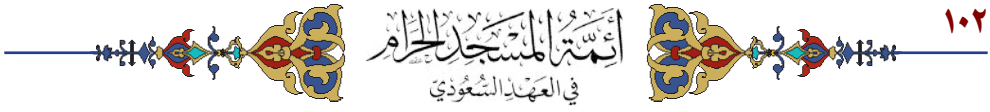 ١٠٢
أئمة المسجد الحرام
في العهد السعودي